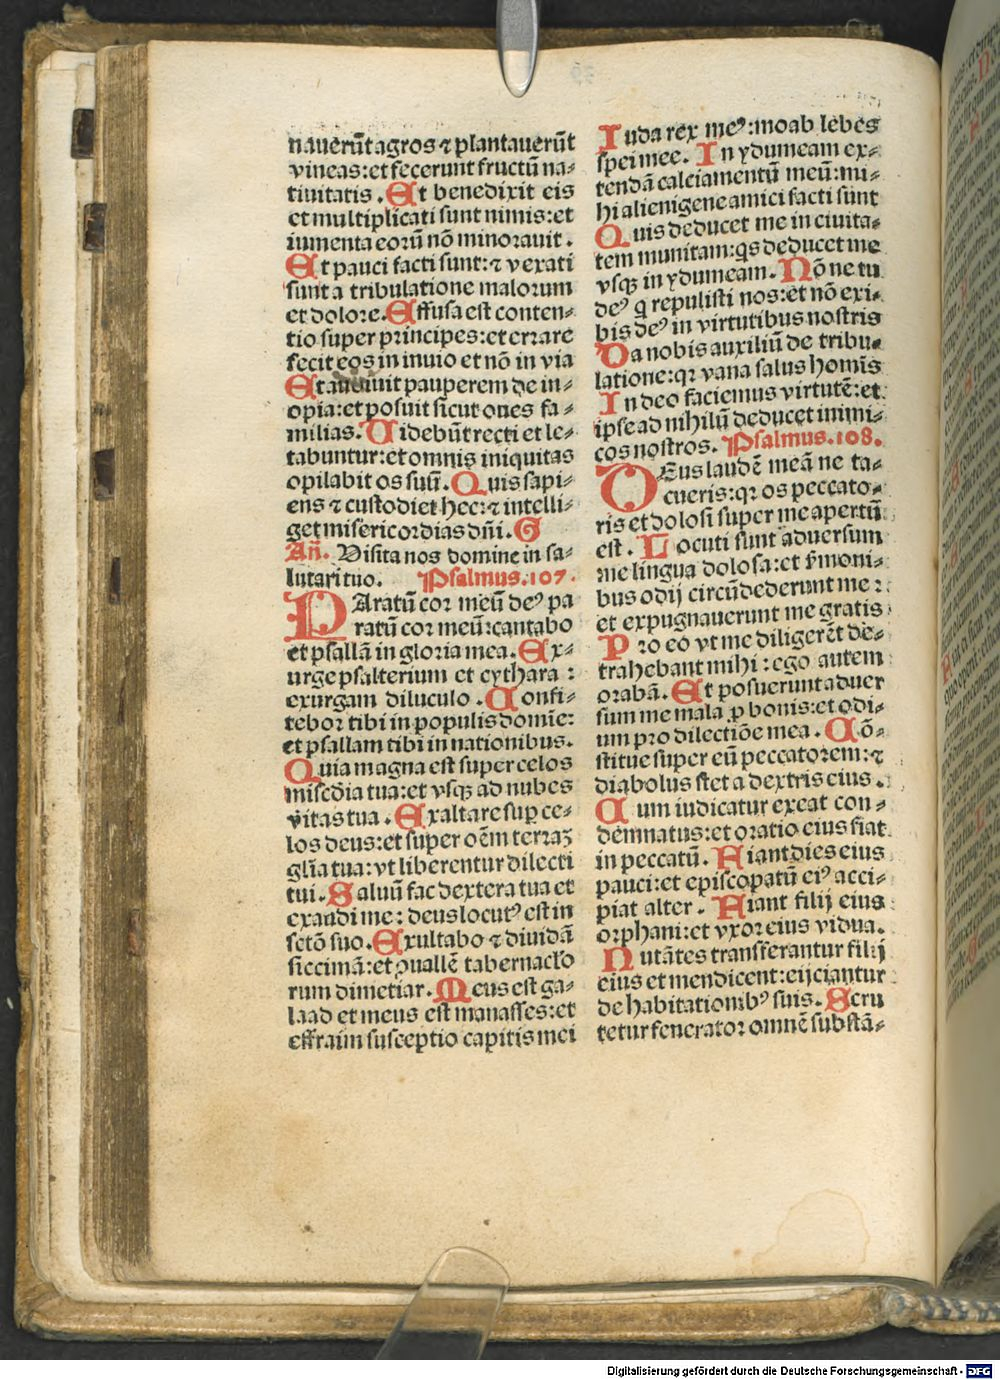 nauerūt agros ⁊ plantauerūt
vineas: et fecerunt fructū na⸗
tiuitatis. Et benedixit eis
et multiplicati sunt nimis: et
iumenta eorū nō minorauit.
Et pauci facti sunt: ⁊ vexati
sunt a tribulatione malorum
et dolore. Effusa est conten⸗
tio super principes: et errare
fecit eos in inuio et nō in via
Et adiuuit pauperem de in⸗
opia: et posuit sicut oues fa⸗
milias. Videbūt recti et le⸗
tabuntur: et omnis iniquitas
opilabit os suū. Quis sapi⸗
ens ⁊ custodiet hec: ⁊ intelli⸗
get misericordias dñi. G
Añ. Visita nos domine in sa⸗
lutari tuo. Psalmus. 107.
PAratū cor meū deꝰ pa
ratū cor meū: cantabo
et psallā in gloria mea. Ex⸗
urge psalterium et cythara:
exurgam diluculo. Confi⸗
tebor tibi in populis domīe:
et psallam tibi in nationibus.
Quia magna est super celos
misc̄dia tua: et vsqꝫ ad nubes
v̄itas tua. Exaltare suꝑ ce⸗
los deus: et super oēm terraꝫ
glīa tua: vt liberentur dilecti
tui. Saluū fac dextera tua et
exaudi me: deus locutꝰ est in
sctō suo. Exultabo ⁊ diuidā
siccimā: et ꝯuallē tabernaclo
rum dimetiar. Meus est ga⸗
laad et meus est manasses: et
effraim susceptio capitis mei
Iuda rex meꝰ: moab lebes
spei mee. In ydumeam ex⸗
tendā calciamentū meū: mi⸗
hi alienigene amici facti sunt
Quis deducet me in ciuita⸗
tem munitam: qs deducet me
vsqꝫ in ydumeam. Nōne tu
deꝰ q repulisti nos: et nō exi⸗
bis deꝰ in virtutibus nostris
Da nobis auxiliū de tribu⸗
latione: qꝛ vana salus homīs
In deo faciemus virtutē: et
ipse ad nihilū deducet inimi⸗
cos nostros. Psalmus. 108.
DEus laudē meā ne ta⸗
cueris: qꝛ os peccato⸗
ris et dolosi super me apertū
est. Locuti sunt aduersum
me lingua dolosa: et s̄moni⸗
bus odij circūdederunt me:
et expugnauerunt me gratis
Pro eo vt me diligerēt de⸗
trahebant mihi: ego autem
orabā. Et posuerunt aduer
sum me mala ꝓ bonis: et odi⸗
um pro dilectiōe mea. Cō⸗
stitue super eū peccatorem: ⁊
diabolus stet a dextris eius.
Cum iudicatur exeat con⸗
demnatus: et oratio eius fiat
in peccatū. Fiant dies eius
pauci: et episcopatū eiꝰ acci⸗
piat alter. Fiant filij eius
orphani: et vxor eius vidua.
Nutātes transferantur filij
eius et mendicent: eijciantur
de habitationibꝰ suis. Scru
tetur fenerator omnē substā⸗
Digitalisierung gefördert durch die Deutsche Forschungsgemeinschaft - DFG